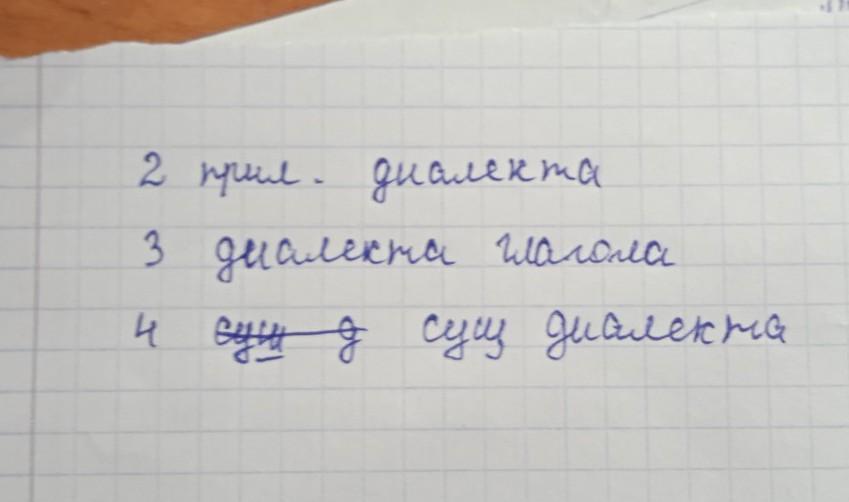 2 прил. диалекта
3 диалекта глагола
4 сущ д сущ диалекта